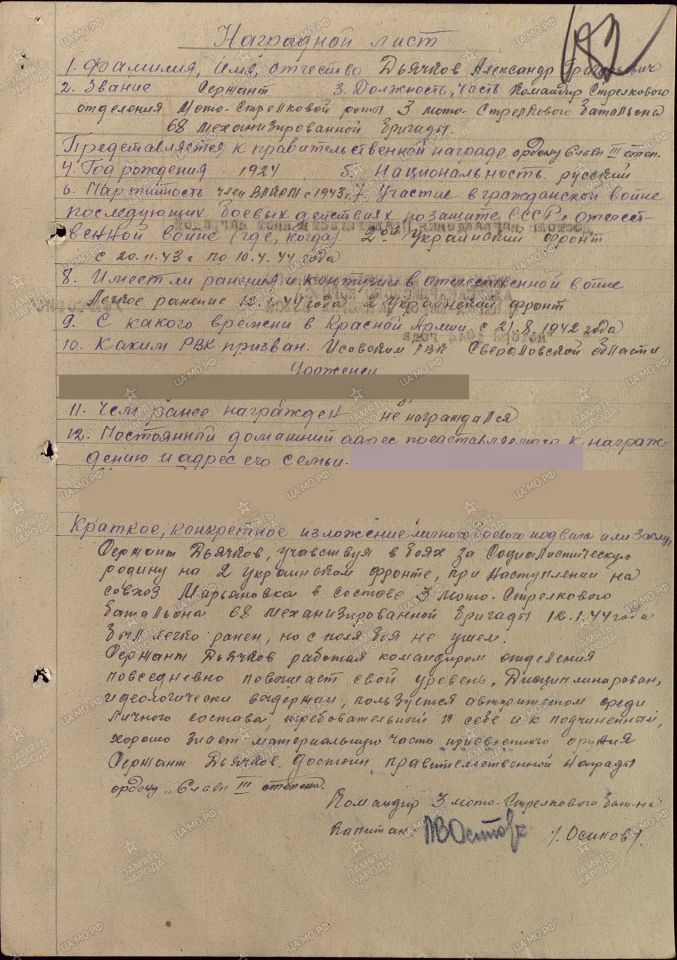 192
Наградной лист
1. Фамилия, имя, отчество Дьячков Александр Григорьевич
2. Звание Сержант 3. Должность, часть Командир Стрелкового
отделения Мото-Стрелковой роты 3 мото-Стрелкового Батальона
68 механизированной Бригады.
Представляется к правительственной награде ордену Славы III степ.
4. Год рождения 1924 5. Национальность русский
6. Партийность член ВЛКСМ с 1943 г. 7. Участие в гражданской войне
последующих боевых действиях по защите СССР и отечест-
венной войне (где, когда) 2ой Украинский фронт
с 20.11.43 г. по 10.4.44 года
8. Имеет ли ранения и контузии в отечественной войне
Легкое ранение 12.1.44 года 2 Украинский фронт
9. С какого времени в Красной Армии. с 21.8.1942 года
10. Каким РВК призван. Исовским РВК Свердловской области
Уроженец
11. Чем ранее награжден не награждался
12. Постоянный домашний адрес представляемого к награж-
дению и адрес его семьи.
Краткое, конкретное изложение личного боевого подвига или заслуг
Сержант Дьячков, участвуя в боях за Социалистическую
родину на 2 Украинском фронте, при наступлении на
совхоз Марьяновка в составе мото-Стрелкового
батальона 68 механизированной Бригады 12.1.44 года
был легко ранен, но с поля боя не ушел.
Сержант Дьячков работая командиром отделения
повседневно повышает свой уровень, Дисциплинирован,
идеологически выдержан, пользуется авторитетом среди
личного состава, требовательный к себе и к подчиненным,
хорошо знает материальную часть присвоенного оружия
Сержант Дьячков достоин правительственной награды
ордену „Славы III степени.
Командир 3 мото-Стрелкового бат-на
Капитан /Осипов/.
ПАМЯТЬ НАРОДА
ЦАМО.РФ